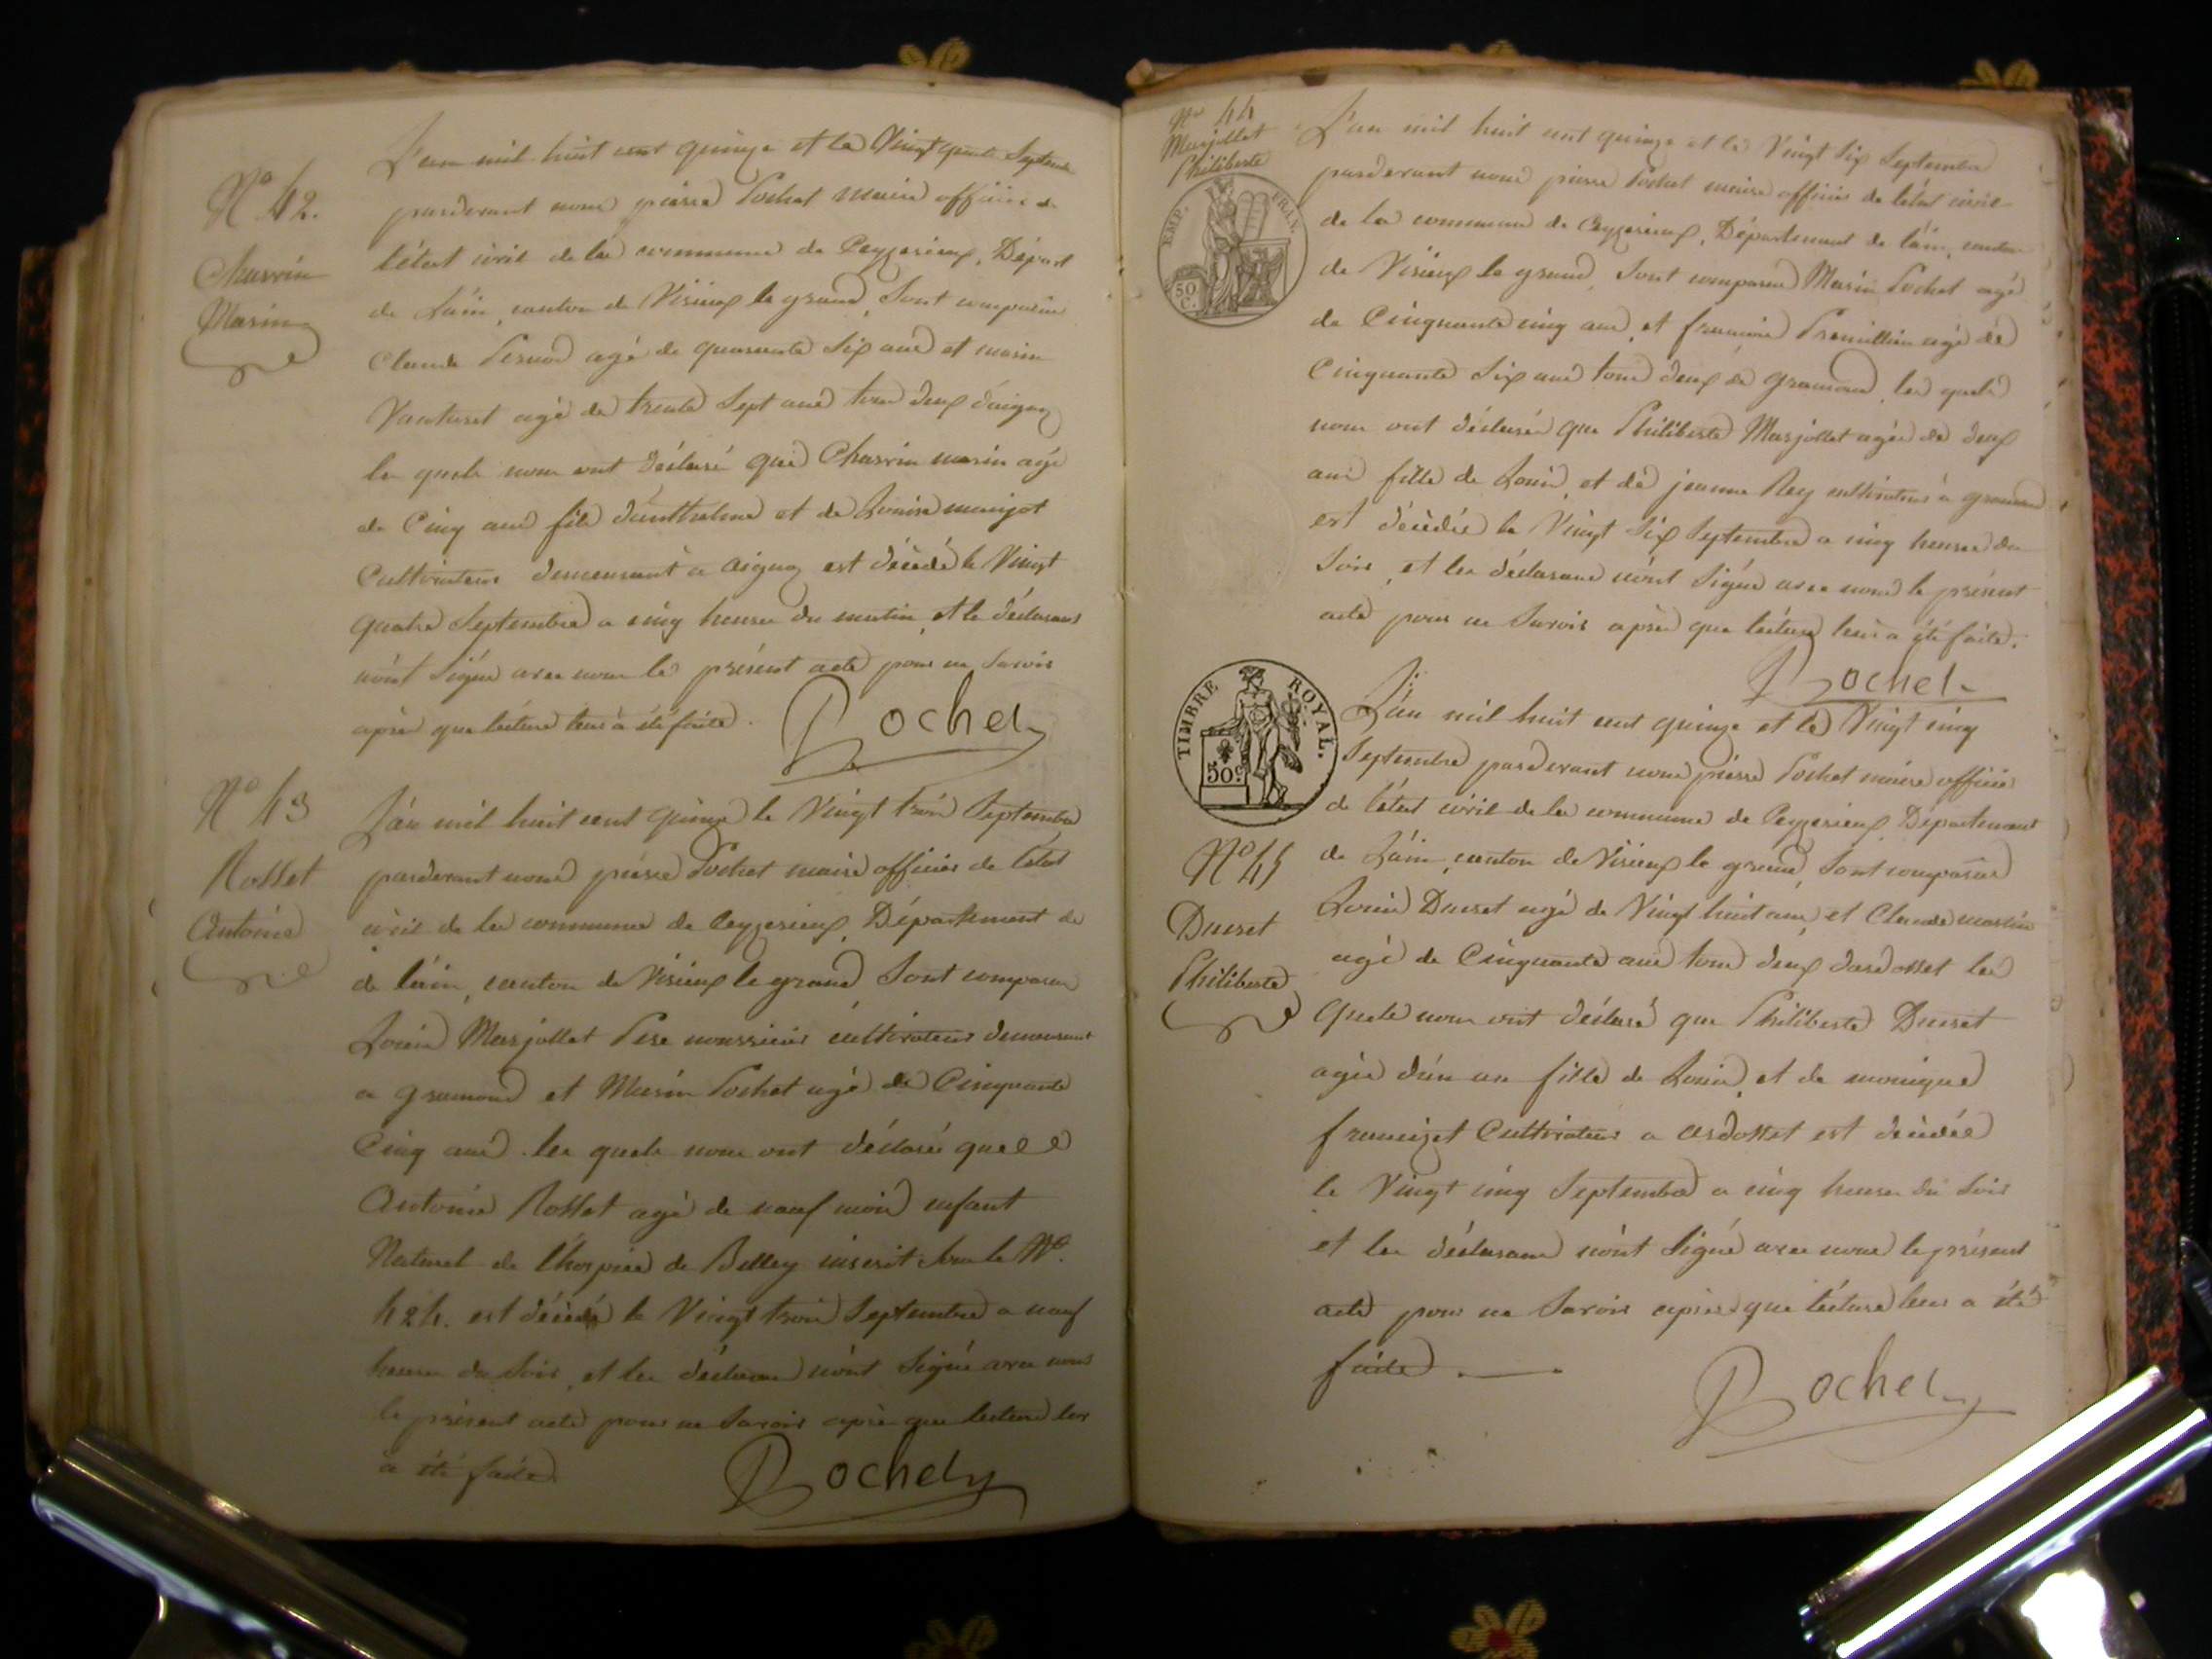 N° 42.
Charvin
Marin
L'an mil huit cent quinze et le Vingt quatre Septembre
pardevant nous pierre Pochet maire officier de
l'état civil de la commune de Ceyzerieux, Départ
de Láin, canton de Virieux le grand, Sont comparus
Claude Pernod agé de quarante Six ans et marin
Vanturet agé de trente Sept ans tous deux d'aignoz
les quels nous ont déclaré que Charvin marin agé
de Cinq ans fils d'anthelme et de Louise maigot
Cultivateurs demeurant à aignoz est décédé le Vingt
quatre Septembre a cinq heures du matin, et le déclarans
nónt Signé avec nous le présent acte pour ne Savoir
après que lécture leur à été faite.
Pochet
N° 43
Rosset
Antoine
L'án mil huit cent quinze le Vingt Trois Septembre
pardevant nous pierre Pochet maire officier de létat
civil de la commune de Ceyzerieux, Département de
de láin, canton de Virieux le grand, Sont comparus
Louis Marjollet Pere nourricier cultivateur demeurant
a gramond et Marin Pochet agé de Cinquante
Cinq ans. les quels nous ont déclaré que
Antoine Rosset agé de neuf mois enfant
Naturel de lhospice de Belley inscrit Sous le N°.
424. est décédé le Vingt trois Septembre a neuf
heures du Soir, et les déclarans nónt Signé avec nous
le présent acte pour ne Savoir après que lecture leur
a été faite.
Pochet
N° 44
Marjollet
Philiberte
EMP. FRAN.
50 C.
L'an mil huit cent quinze et le Vingt Six Septembre
pardevant nous pierre Pochet maire officier de létat civil
de la commune de Ceyzerieux, Département de láin, canton
de Virieux le grand, Sont comparus Marin Pochet agé
de Cinquante cinq ans, et francois Premillieu agé de
Cinquante Six ans tous deux de gramond, les quels
nous ont déclaré que Philiberte Marjollet agée de deux
ans fille de Louis, et de jeanne Rey cultivateurs à gramond
est décédée le Vingt Six Septembre a cinq heures du
Soir, et les déclarans nónt Signé avec nous le présent
acte pour ne Savoir après que lécture leur a été faite.
Pochet
TIMBRE ROYAL.
50 c.
N° 45
Ducret
Philiberte
L'án mil huit cent quinze et le Vingt cinq
Septembre pardevant nous pierre Pochet maire officier
de l'état civil de la commune de Ceyzerieux Département
de Láin, canton de Virieux le grand, Sont comparus
Louis Ducret agé de Vingt huit ans, et Claude martin
agé de Cinquante ans tous deux dardosset les
quels nous ont déclaré que Philiberte Ducret
agée d'un an fille de Louis, et de monique
francizet Cultivateurs a ardosset est décédée
le Vingt cinq Septembre a cinq heures du Soir
et les déclarans nónt Signé avec nous le présent
acte pour ne Savoir après que lécture leur a été
faite.
Pochet